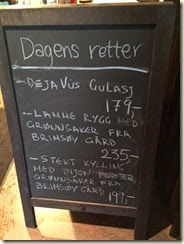 Dagens retter
DEJA VÜS GULASJ
179,-
– LAMME RYGG MED
GRØNNSAKER FRA
BRIMSØY GÅRD
235,-
– STEKT KYLLING
MED DIJON POTETER
GRØNNSAKER FRA
BRIMSØY GÅRD
197,-